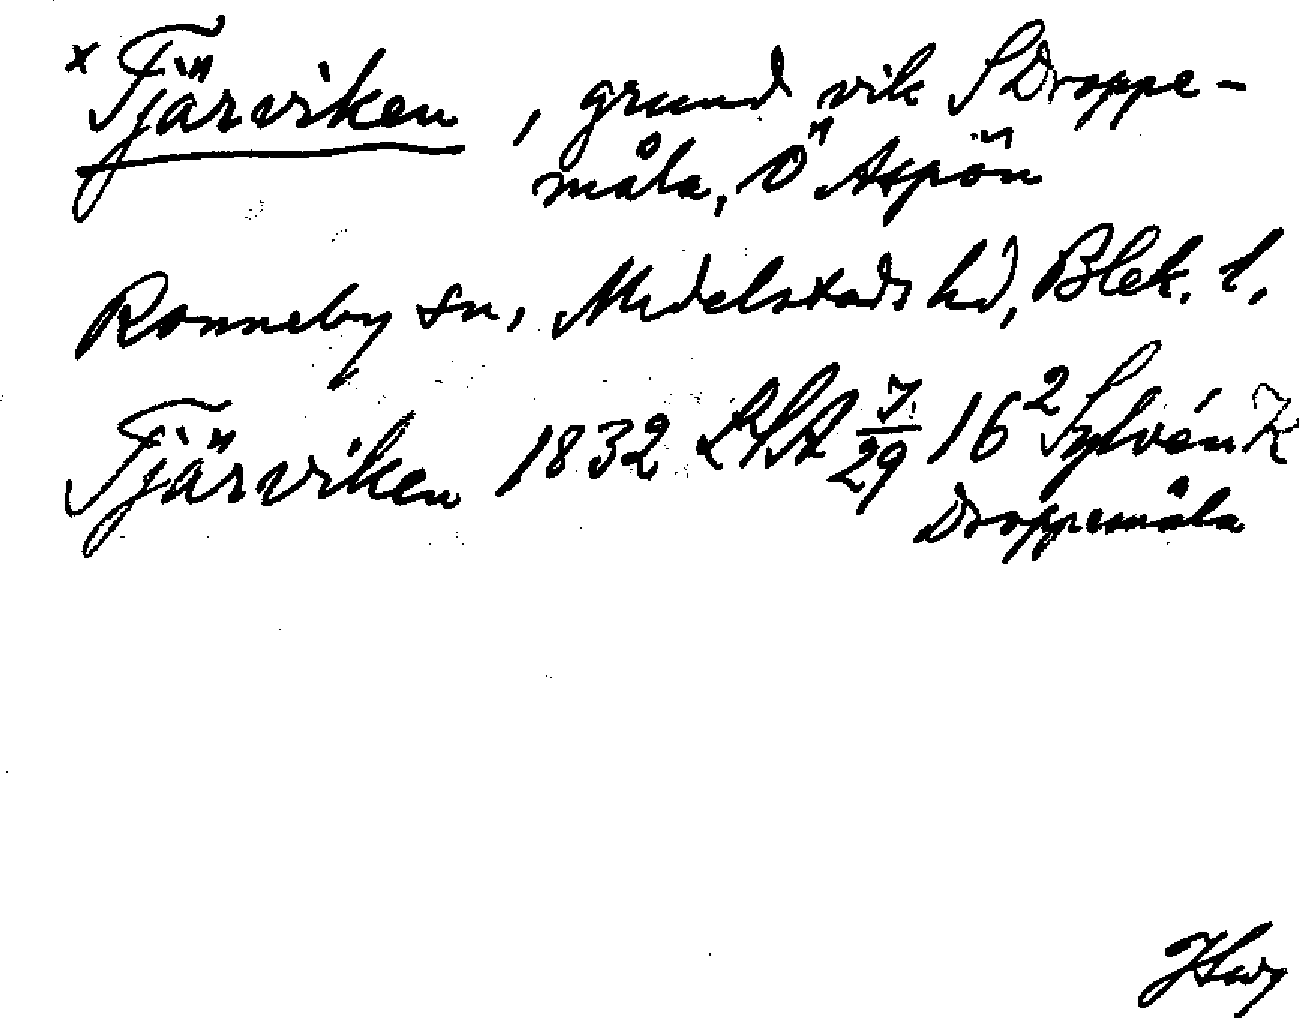 x Tjärviken, grund vik S Droppe-
måla, Ö Aspön
Ronneby sn, Medelstads hd, Blek. l.
Tjärviken 1832 LSA 7/29 16² Sylvén K
Droppemåla